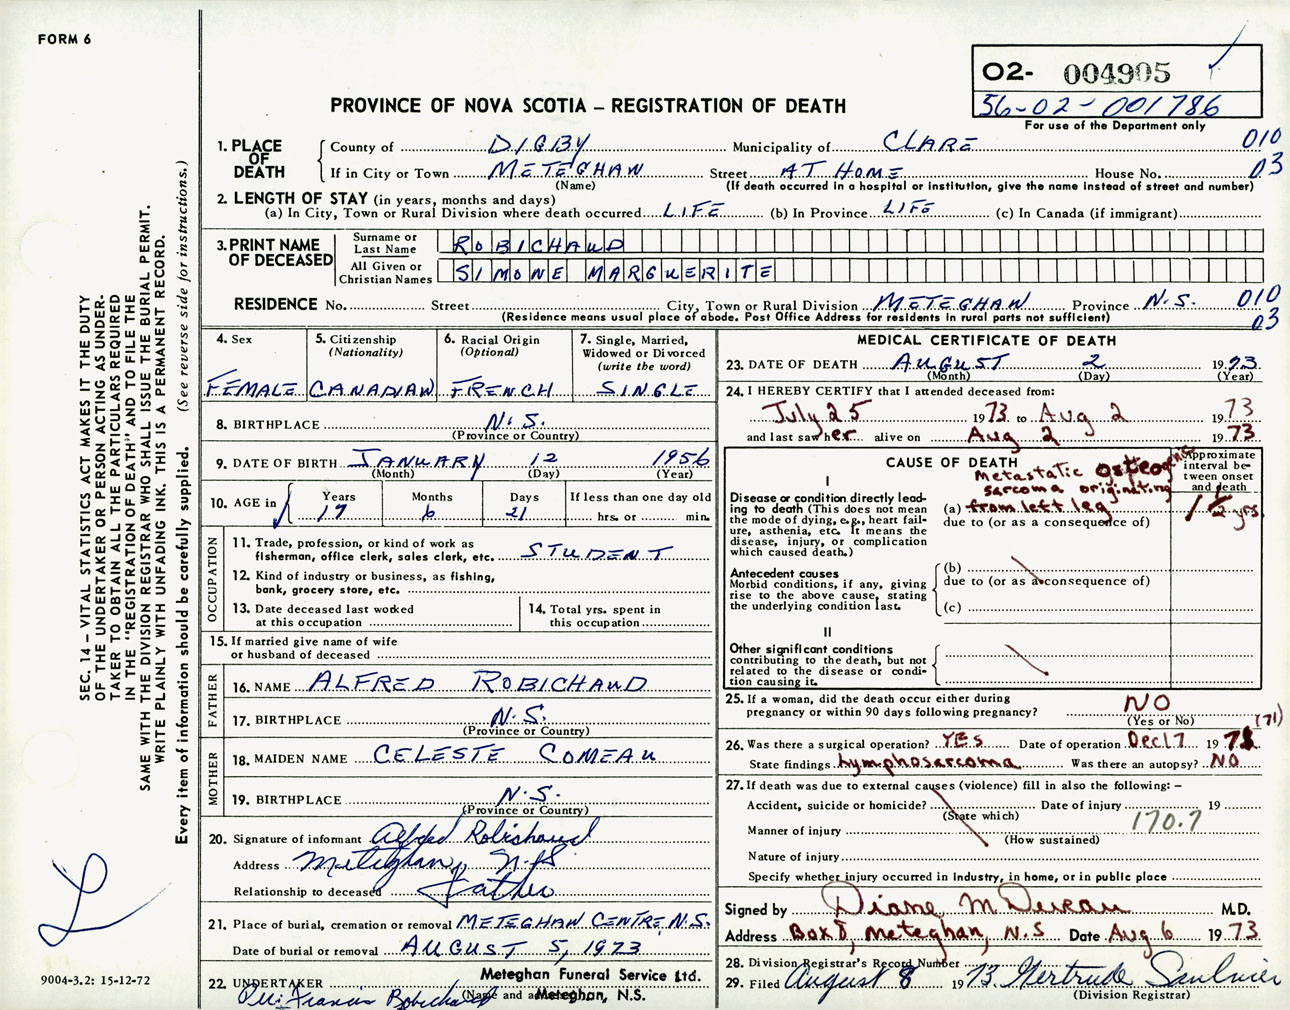 FORM 6
O2- 004905
56-02-001786
For use of the Department only
PROVINCE OF NOVA SCOTIA – REGISTRATION OF DEATH
SEC. 14 – VITAL STATISTICS ACT MAKES IT THE DUTY
OF THE UNDERTAKER OR PERSON ACTING AS UNDER-
TAKER TO OBTAIN ALL THE PARTICULARS REQUIRED
IN THE "REGISTRATION OF DEATH" AND TO FILE THE
SAME WITH THE DIVISION REGISTRAR WHO SHALL ISSUE THE BURIAL PERMIT.
WRITE PLAINLY WITH UNFADING INK. THIS IS A PERMANENT RECORD.
Every item of information should be carefully supplied. (See reverse side for instructions.)
1. PLACE OF DEATH
County of DIGBY Municipality of CLARE 010
If in City or Town METEGHAN Street AT HOME House No. 03
(Name) (If death occurred in a hospital or institution, give the name instead of street and number)
2. LENGTH OF STAY (in years, months and days)
(a) In City, Town or Rural Division where death occurred LIFE (b) In Province LIFE (c) In Canada (if immigrant)
3. PRINT NAME OF DECEASED
Surname or Last Name ROBICHAUD
All Given or Christian Names SIMONE MARGUERITE
RESIDENCE No. Street City, Town or Rural Division METEGHAN Province N.S. 010
(Residence means usual place of abode. Post Office Address for residents in rural parts not sufficient) 03
4. Sex
FEMALE
5. Citizenship
(Nationality)
CANADIAN
6. Racial Origin
(Optional)
FRENCH
7. Single, Married,
Widowed or Divorced
(write the word)
SINGLE
8. BIRTHPLACE N.S.
(Province or Country)
9. DATE OF BIRTH JANUARY 12 1956
(Month) (Day) (Year)
10. AGE in
Years Months Days If less than one day old
17 6 21 hrs. or min.
OCCUPATION
11. Trade, profession, or kind of work as
fisherman, office clerk, sales clerk, etc. STUDENT
12. Kind of industry or business, as fishing,
bank, grocery store, etc.
13. Date deceased last worked
at this occupation
14. Total yrs. spent in
this occupation
15. If married give name of wife
or husband of deceased
FATHER
16. NAME ALFRED ROBICHAUD
17. BIRTHPLACE N.S.
(Province or Country)
MOTHER
18. MAIDEN NAME CELESTE COMEAU
19. BIRTHPLACE N.S.
(Province or Country)
20. Signature of informant Alfred Robichaud
Address Meteghan, N.S
Relationship to deceased Father
21. Place of burial, cremation or removal METEGHAN CENTRE, N.S.
Date of burial or removal AUGUST 5, 1973
22. UNDERTAKER Meteghan Funeral Service Ltd.
Francis Robichaud (Name and Meteghan, N.S.
9004-3.2: 15-12-72
MEDICAL CERTIFICATE OF DEATH
23. DATE OF DEATH AUGUST 2 1973
(Month) (Day) (Year)
24. I HEREBY CERTIFY that I attended deceased from:
July 25 1973 to Aug 2 1973
and last saw her alive on Aug 2 1973
CAUSE OF DEATH
Approximate interval between onset and death
I
Disease or condition directly lead-
ing to death (This does not
mean the mode of dying, e.g., heart fail-
ure, asthenia, etc. It means the
disease, injury, or complication
which caused death.)
Metastatic osteogenic
sarcoma originating
(a) from left leg 1 1/2 yrs.
due to (or as a consequence of)
Antecedent causes
Morbid conditions, if any, giving
rise to the above cause, stating
the underlying condition last.
(b)
due to (or as a consequence of)
(c)
II
Other significant conditions
contributing to the death, but not
related to the disease or condi-
tion causing it.
25. If a woman, did the death occur either during
pregnancy or within 90 days following pregnancy? NO
(Yes or No)
(71)
26. Was there a surgical operation? YES Date of operation Dec 17 1971
State findings Lymphosarcoma Was there an autopsy? NO
27. If death was due to external causes (violence) fill in also the following: –
Accident, suicide or homicide? Date of injury 19
(State which)
Manner of injury 170.7
(How sustained)
Nature of injury
Specify whether injury occurred in industry, in home, or in public place
Signed by Diane M Deveau M.D.
Address Box 8, Meteghan, N.S Date Aug 6 1973
28. Division Registrar's Record Number
29. Filed August 8 1973. Gertrude Saulnier
(Division Registrar)